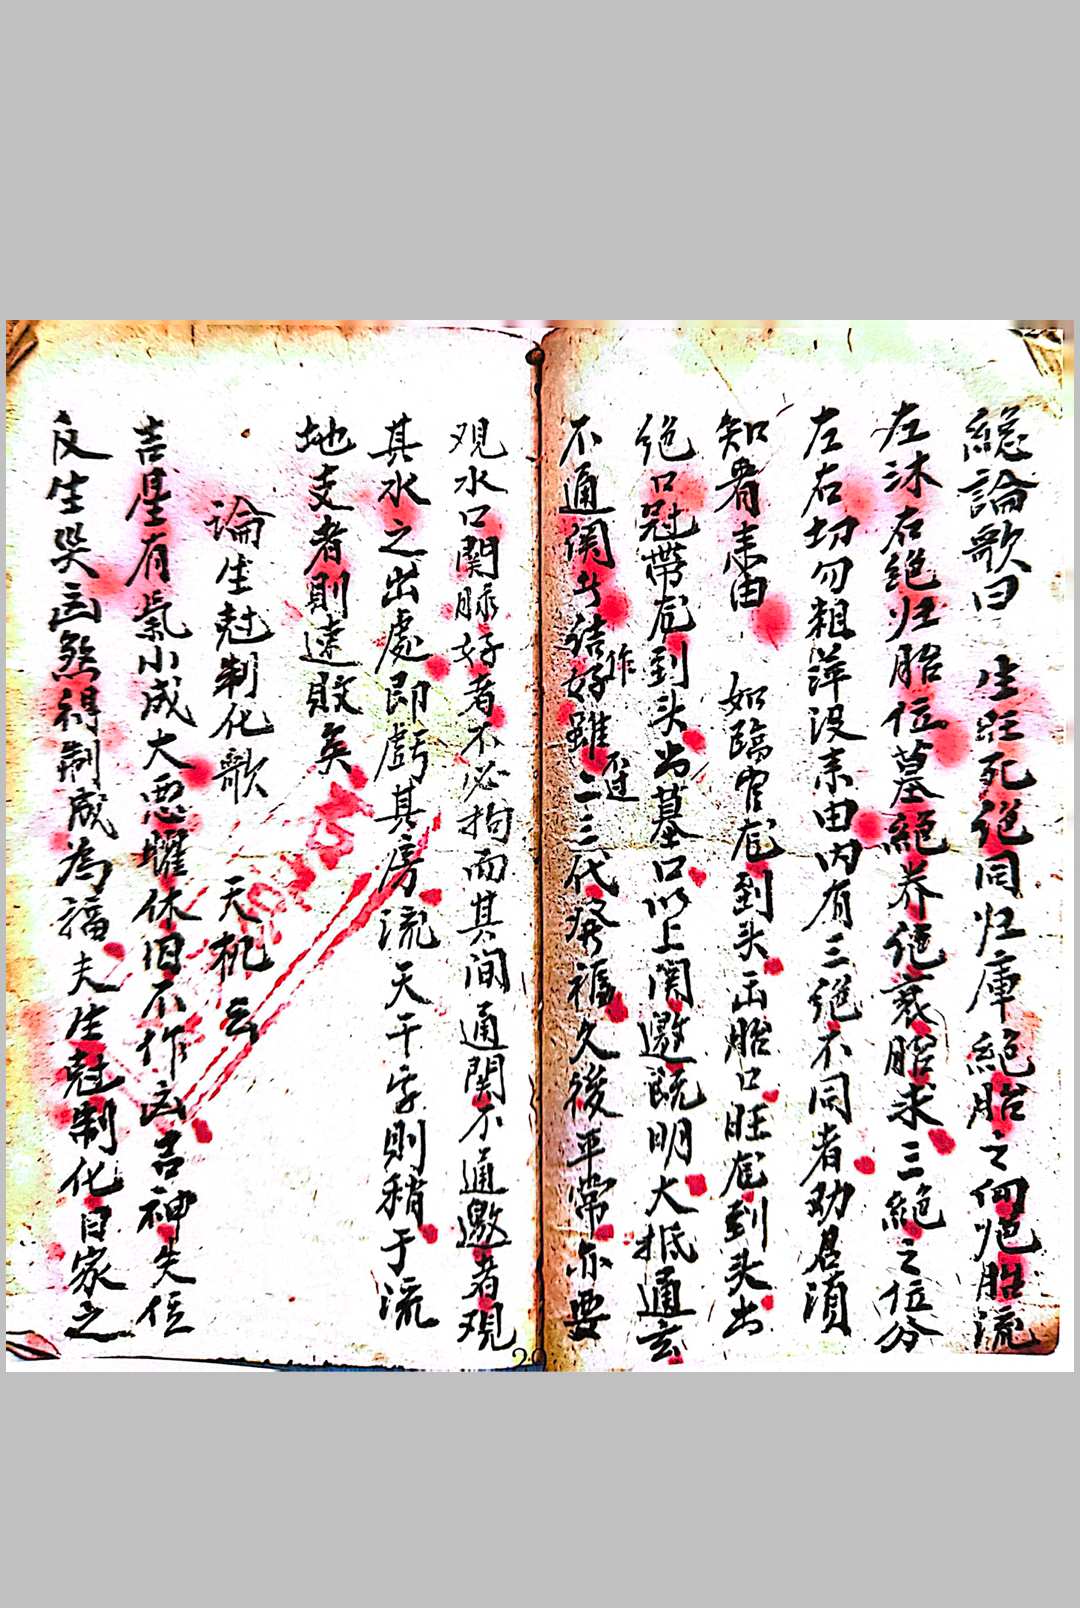 総論歌曰 生旺死绝同归庫絕胎之向绝胎流
左沐右絕归胎位墓絕养绝衰腥求三絕之位分
左右切勿粗萍没耒由内有三绝不同者劝君須
知看耒由 如臨官庇到头出胎口旺庇到头出
绝口冠帶庇到头出墓口以上関邀既明大抵通玄
不通関者結作好雖不过二三代発福久後平常亦要
观水口関脉好者不必拘而其间通関不通邀者观
其水之出處即虧其房流天干字則稍于流
地支者則速敗矣
論生尅制化歌 天机云
吉星有氣小成大悪曜休囚不作凶吉神失位
反生災凶煞得制威為福夫生尅制化日家之
29